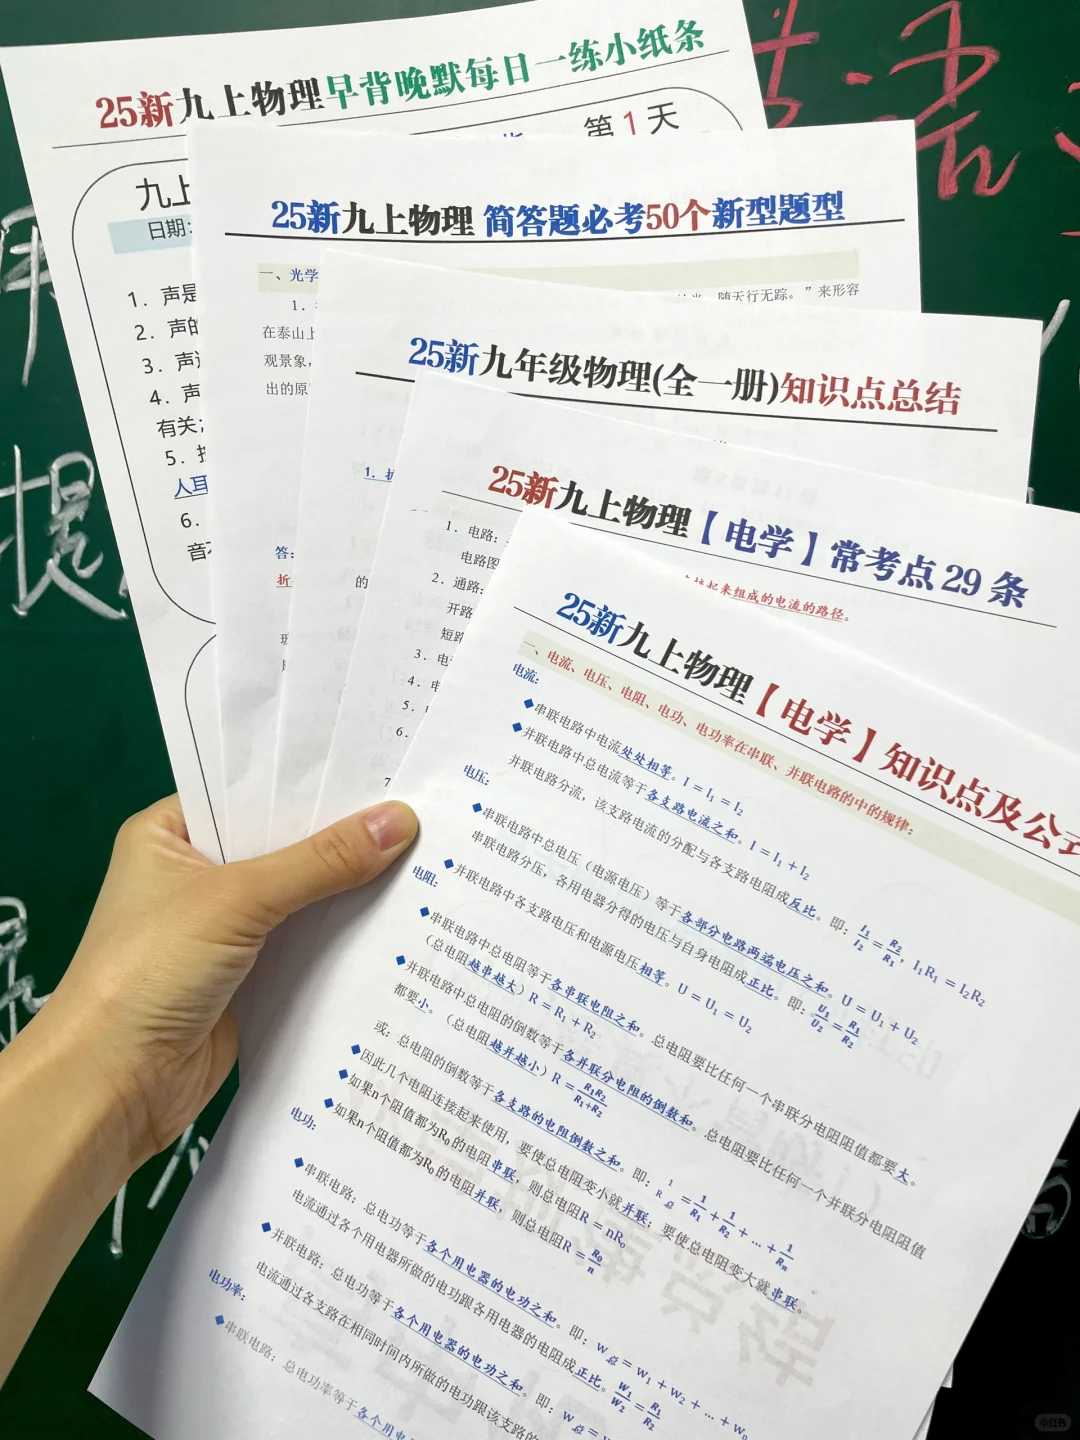 25新九上物理早背晚默每日一练小纸条
第1天
九上
日期:
1. 声是
2. 声的
3. 声
4. 声
有关;
5.
人耳
6.
音不
25新九上物理 简答题必考50个新型题型
一、光学
1.
随天行无踪。”来形容
在泰山上
观景象,
出的原
答:
折
25新九年级物理(全一册)知识点总结
1.
的
25新九上物理【电学】常考点29条
1. 电路:
来组成的电流的路径。
电路图
2. 通路:
开路
短路
3. 电
4. 电
5.
6.
7
25新九上物理【电学】知识点及公式
一、电流、电压、电阻、电功、电功率在串联、并联电路的中的规律:
电流:
◆串联电路中电流处处相等。I = I₁ = I₂
◆并联电路中总电流等于各支路电流之和。I = I₁ + I₂
并联电路分流,该支路电流的分配与各支路电阻成反比。即: I₁/I₂ = R₂/R₁, I₁R₁ = I₂R₂
电压:
◆串联电路中总电压(电源电压)等于各部分电路两端电压之和。U = U₁ + U₂
串联电路分压,各用电器分得的电压与自身电阻成正比。即: U₁/U₂ = R₁/R₂
◆并联电路中各支路电压和电源电压相等。U = U₁ = U₂
电阻:
◆串联电路中总电阻等于各串联电阻之和。总电阻要比任何一个串联分电阻阻值都要大。
(总电阻越串越大)R = R₁ + R₂
◆并联电路中总电阻的倒数等于各并联分电阻的倒数和。总电阻要比任何一个并联分电阻阻值
都要小。(总电阻越并越小)R = R₁R₂/R₁+R₂
或:总电阻的倒数等于各支路的电阻倒数之和。即: 1/R总 = 1/R₁ + 1/R₂ + … + 1/Rₙ
◆因此几个电阻连接起来使用,要使总电阻变小就并联;要使总电阻变大就串联。
◆如果n个阻值都为R₀的电阻串联,则总电阻R = nR₀
◆如果n个阻值都为R₀的电阻并联,则总电阻R = R₀/n
电功:
◆串联电路:总电功等于各个用电器的电功之和。即: W总 = W₁ + W₂ + … + Wₙ
电流通过各个用电器所做的电功跟各用电器的电阻成正比。W₁/W₂ = R₁/R₂
◆并联电路:总电功等于各个用电器的电功之和。即: W总 = W
电流通过各支路在相同时间内所做的电功跟该支路的
电功率:
◆串联电路:总电功率等于各个用电
小红书